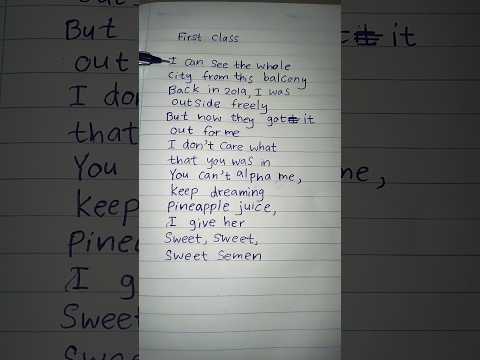 First Class
I can see the whole
city from this balcony
Back in 2019, I was
outside freely
But now they got it
out for me
I don't care what
that you was in
You can't alpha me,
keep dreaming
pineapple juice,
I give her
Sweet, sweet,
sweet semen